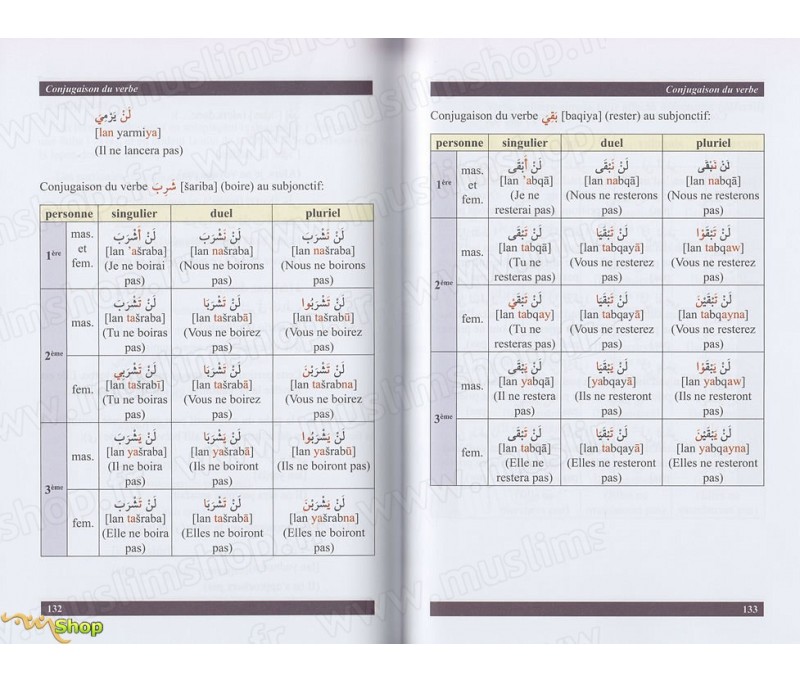 Conjugaison du verbe
لَنْ يَرْمِيَ
[lan yarmiya]
(Il ne lancera pas)
Conjugaison du verbe شَرِبَ [šariba] (boire) au subjonctif:
personne singulier duel pluriel
1ère mas. et fem.
لَنْ أَشْرَبَ لَنْ نَشْرَبَ لَنْ نَشْرَبَ
[lan 'ašraba] [lan našraba] [lan našraba]
(Je ne boirai pas) (Nous ne boirons pas) (Nous ne boirons pas)
2ème mas.
لَنْ تَشْرَبَ لَنْ تَشْرَبَا لَنْ تَشْرَبُوا
[lan tašraba] [lan tašrabā] [lan tašrabū]
(Tu ne boiras pas) (Vous ne boirez pas) (Vous ne boirez pas)
fem.
لَنْ تَشْرَبِي لَنْ تَشْرَبَا لَنْ تَشْرَبْنَ
[lan tašrabī] [lan tašrabā] [lan tašrabna]
(Tu ne boiras pas) (Vous ne boirez pas) (Vous ne boirez pas)
3ème mas.
لَنْ يَشْرَبَ لَنْ يَشْرَبَا لَنْ يَشْرَبُوا
[lan yašraba] [lan yašrabā] [lan yašrabū]
(Il ne boira pas) (Ils ne boiront pas) (Ils ne boiront pas)
fem.
لَنْ تَشْرَبَ لَنْ تَشْرَبَا لَنْ يَشْرَبْنَ
[lan tašraba] [lan tašrabā] [lan yašrabna]
(Elle ne boira pas) (Elles ne boiront pas) (Elles ne boiront pas)
132
Conjugaison du verbe
Conjugaison du verbe بَقِيَ [baqiya] (rester) au subjonctif:
personne singulier duel pluriel
1ère mas. et fem.
لَنْ أَبْقَى لَنْ نَبْقَى لَنْ نَبْقَى
[lan 'abqā] [lan nabqā] [lan nabqā]
(Je ne resterai pas) (Nous ne resterons pas) (Nous ne resterons pas)
2ème mas.
لَنْ تَبْقَى لَنْ تَبْقَيَا لَنْ تَبْقَوْا
[lan tabqā] [lan tabqayā] [lan tabqaw]
(Tu ne resteras pas) (Vous ne resterez pas) (Vous ne resterez pas)
fem.
لَنْ تَبْقَيْ لَنْ تَبْقَيَا لَنْ تَبْقَيْنَ
[lan tabqay] [lan tabqayā] [lan tabqayna]
(Tu ne resteras pas) (Vous ne resterez pas) (Vous ne resterez pas)
3ème mas.
لَنْ يَبْقَى لَنْ يَبْقَيَا لَنْ يَبْقَوْا
[lan yabqā] [yabqayā] [lan yabqaw]
(Il ne restera pas) (Ils ne resteront pas) (Ils ne resteront pas)
fem.
لَنْ تَبْقَى لَنْ تَبْقَيَا لَنْ يَبْقَيْنَ
[lan tabqā] [lan tabqayā] [lan yabqayna]
(Elle ne restera pas) (Elles ne resteront pas) (Elles ne resteront pas)
133
www.muslimshop.fr
Shop